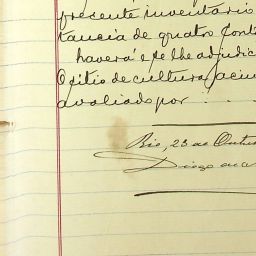 presente inventario
tancia de quatro Cont
haverá e se lhe adjudic
O sitio de cultura, acim
avaliado por . . . .
Rio, 23 de Outu
Diogo de